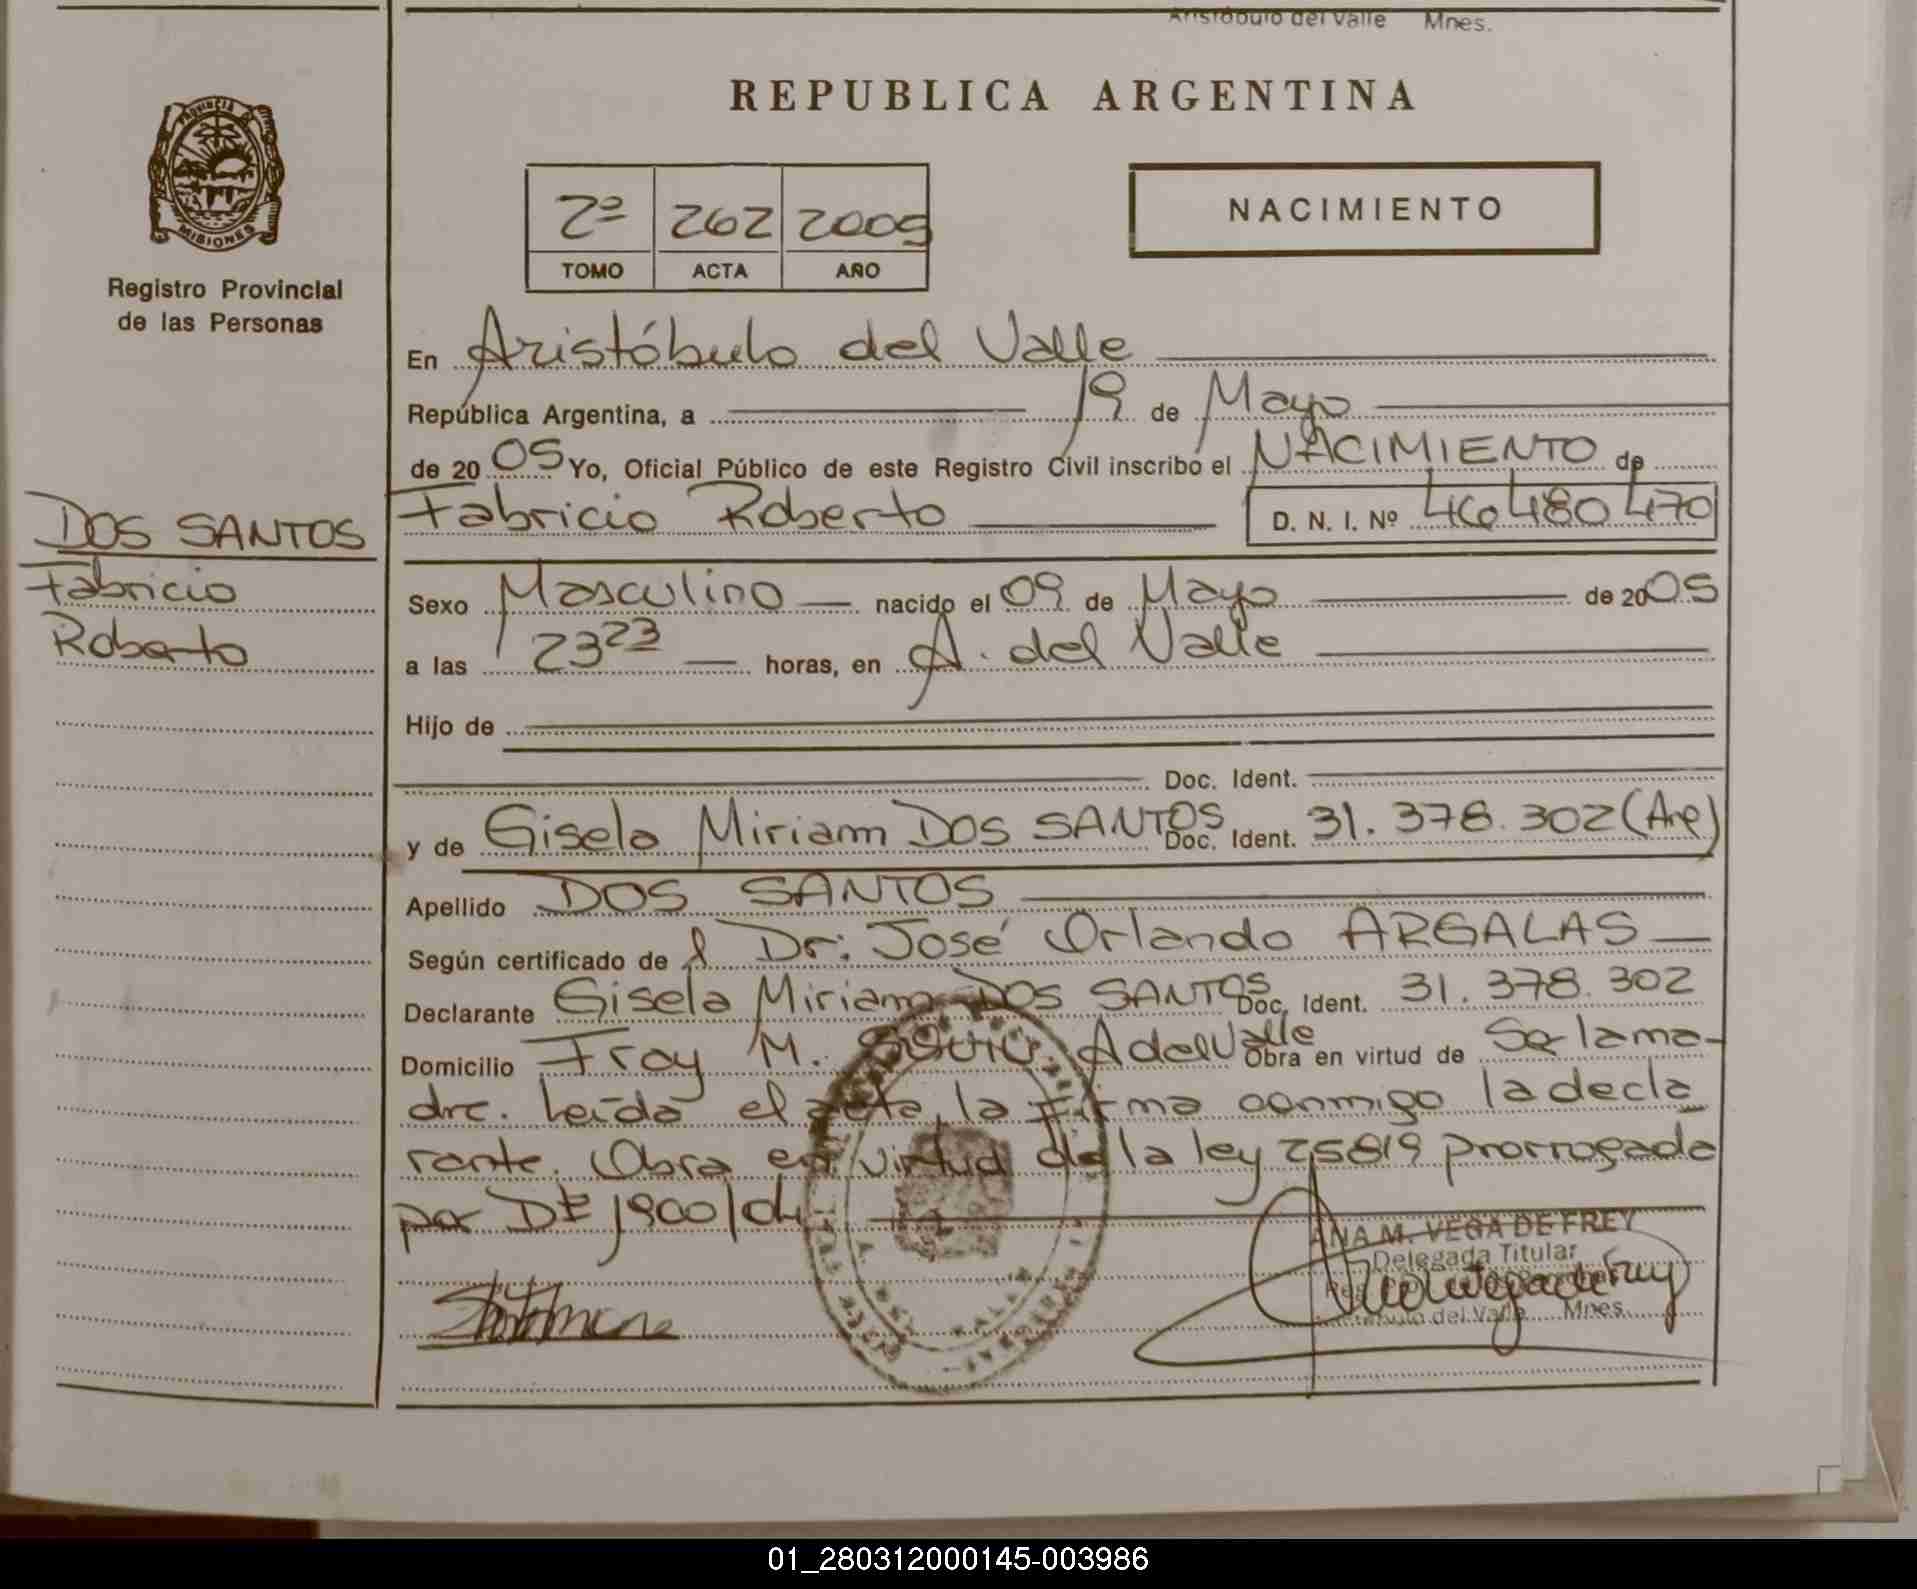 Aristóbulo del Valle Mnes.
REPUBLICA ARGENTINA
PROVINCIA DE
MISIONES
Registro Provincial
de las Personas
2º 262 2005
TOMO ACTA AÑO
NACIMIENTO
En Aristóbulo del Valle
República Argentina, a 19 de Mayo
de 2005 Yo, Oficial Público de este Registro Civil inscribo el NACIMIENTO de
Fabricio Roberto D. N. I. Nº 46480470
DOS SANTOS
Fabricio
Roberto
Sexo Masculino nacido el 09 de Mayo de 2005
a las 23 23 horas, en A. del Valle
Hijo de
Doc. Ident.
y de Gisela Miriam DOS SANTOS Doc. Ident. 31.378.302 (Arg)
Apellido DOS SANTOS
Según certificado de l Dr. José Orlando ARGALAS
Declarante Gisela Miriam DOS SANTOS Doc. Ident. 31.378.302
Domicilio Fray M. A del Valle Obra en virtud de Se la ma-
dre. Leída el acta, la firma conmigo la decla
rante. Obra en virtud de la ley 25819 prorrogada
por Dt 1900/04
ANA M. VEGA DE FREY
Delegada Titular
Aristóbulo del Valle Mnes.
01_280312000145-003986